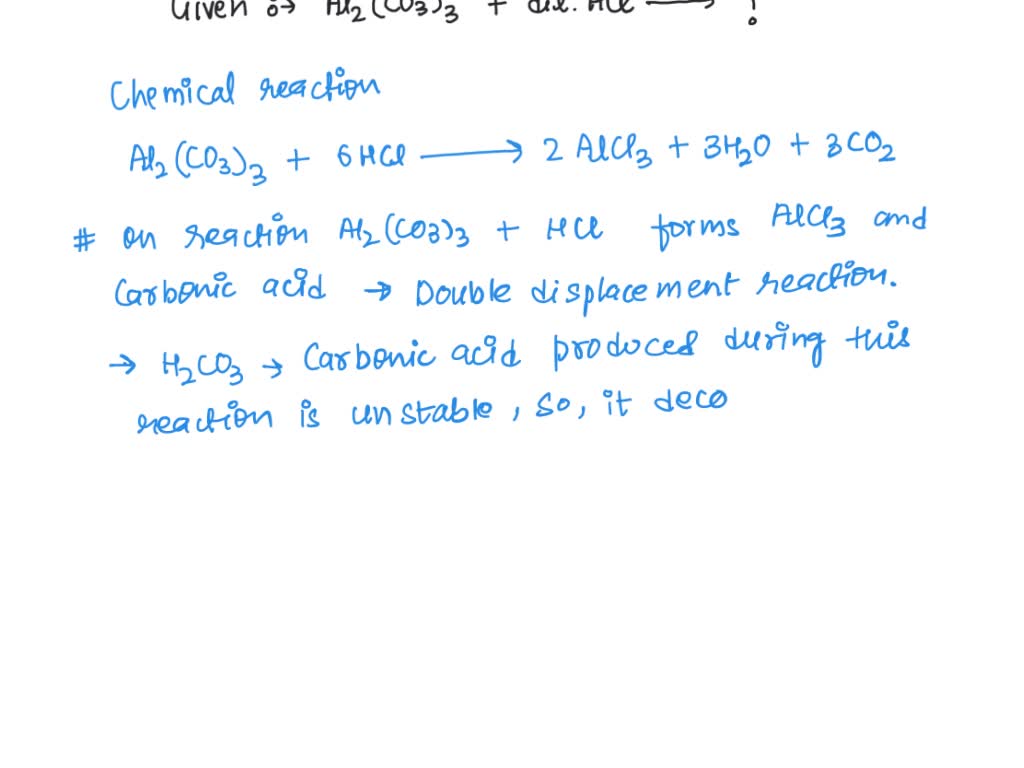 Given :→ Al₂(CO₃)₃ + dil. HCl ⟶ ?
Chemical reaction
Al₂(CO₃)₃ + 6HCl ⟶ 2 AlCl₃ + 3H₂O + 3CO₂
# on reaction Al₂(CO₃)₃ + HCl forms AlCl₃ and
Carbonic acid → Double displacement reaction.
→ H₂CO₃ → Carbonic acid produced during this
reaction is unstable, so, it deco